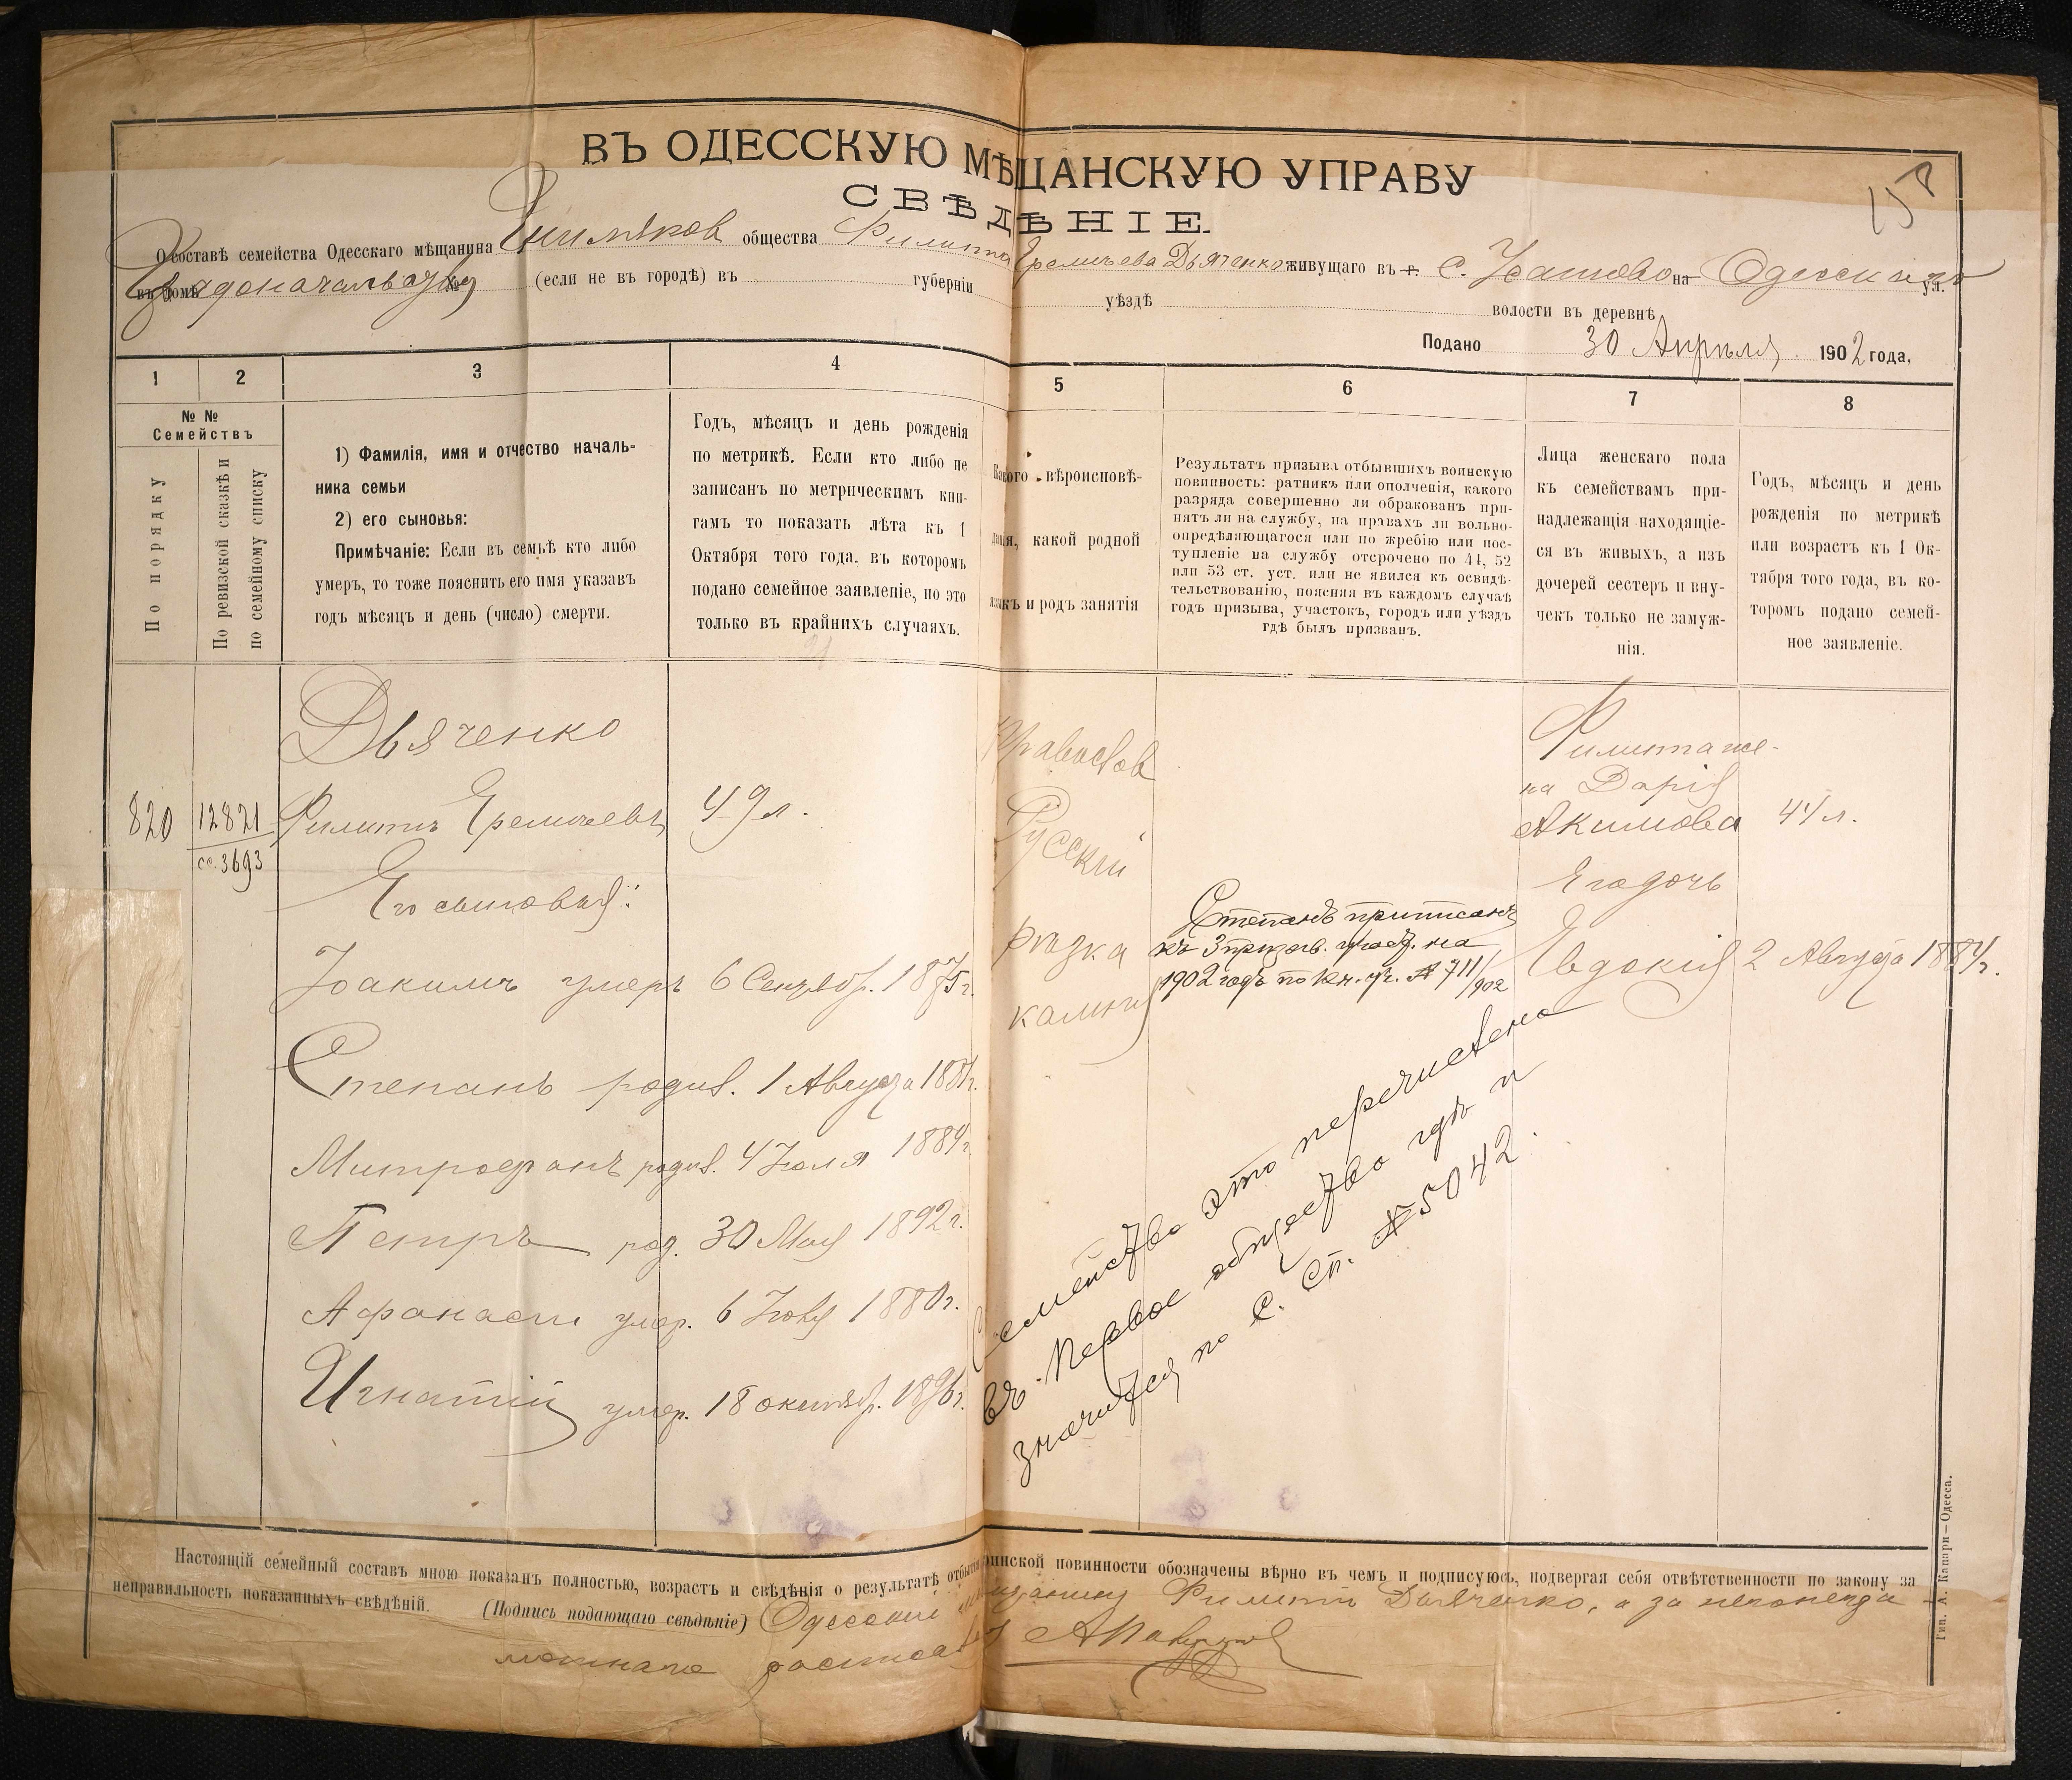 158
ВЪ ОДЕССКУЮ МѢЩАНСКУЮ УПРАВУ
СВѢДѢНІЕ.
О составѣ семейства Одесскаго мѣщанина общества Филипа Еремѣева Дьяченко живущаго въ г. с. Усатово на Одесскаго ул.
въ домѣ № Градоначальства (если не въ городѣ) въ губерніи уѣздѣ волости въ деревнѣ
Подано 30 Апрѣля 1902 года.
1 2 3 4 5 6 7 8
№ №
Семействъ
По порядку
По ревизской сказкѣ и
по семейному списку
1) Фамилія, имя и отчество началь-
ника семьи
2) его сыновья:
Примѣчаніе: Если въ семьѣ кто либо
умеръ, то тоже пояснить его имя указавъ
годъ мѣсяцъ и день (число) смерти.
Годъ, мѣсяцъ и день рожденія
по метрикѣ. Если кто либо не
записанъ по метрическимъ кни-
гамъ то показать лѣта къ 1
Октября того года, въ которомъ
подано семейное заявленіе, но это
только въ крайнихъ случаяхъ.
Какого вѣроисповѣ-
данія, какой родной
языкъ и родъ занятія
Результатъ призыва отбывшихъ воинскую
повинность: ратникъ или ополченія, какого
разряда совершенно ли обракованъ при-
нятъ ли на службу, на правахъ ли вольно-
опредѣляющагося или по жребію или пос-
тупленіе на службу отсрочено по 44, 52
или 53 ст. уст. или не явился къ освидѣ-
тельствованію, поясняя въ каждомъ случаѣ
годъ призыва, участокъ, городъ или уѣздъ
гдѣ былъ призванъ.
Лица женскаго пола
къ семействамъ при-
надлежащія находящіе-
ся въ живыхъ, а изъ
дочерей сестеръ и вну-
чекъ только не замуж-
нія.
Годъ, мѣсяцъ и день
рожденія по метрикѣ
или возрастъ къ 1 Ок-
тября того года, въ ко-
торомъ подано семей-
ное заявленіе.
Дьяченко
820 12821 Филипъ Еремѣевъ 49 л.
сс. 3693
Его сыновья:
Іоакимъ умеръ 6 Сентябр. 1875 г.
Степанъ родил. 1 Августа 1881 г.
Митрофанъ родил. 4 Іюля 1889 г.
Петръ род. 30 Мая 1892 г.
Афанасій умер. 6 1880 г.
Игнатій умер. 18 октябр. 1896 г.
Православ
Русскій
рѣзка
камня
Степанъ приписанъ
къ 3 призыв. участ. на
1902 годъ по кн. уч. № 711/902
Филипа же-
на Дарія
Акимова 44 л.
Его дочь
Евдокія 2 Августа 1884 г.
Семейство это перечислено
въ Первое общество гдѣ и
значится по С. Сп. № 5042.
Настоящій семейный составъ мною показанъ полностью, возрастъ и свѣдѣнія о результатѣ отбытія воинской повинности обозначены вѣрно въ чемъ и подписуюсь, подвергая себя отвѣтственности по закону за
неправильность показанныхъ свѣдѣній. (Подпись подающаго свѣдѣніе) Одесскій мѣщанинъ Филипъ Дьяченко, а за неграмот
расписал
Тип. А. Капари—Одесса.